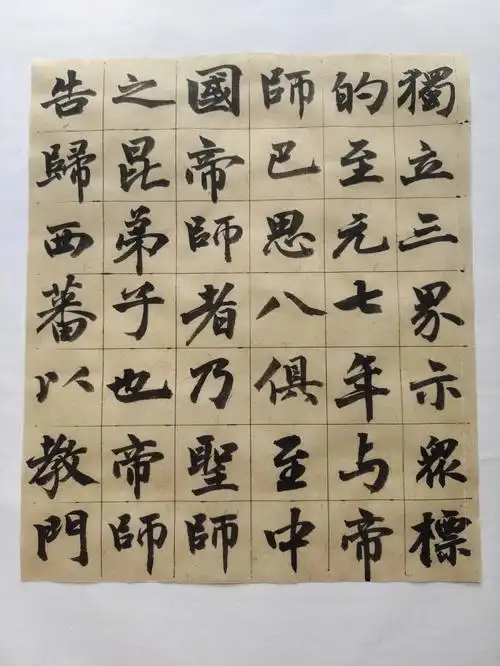 獨立三界示眾標
的至元七年与帝
師巴思八俱至中
國帝師者乃聖師
之昆弟子也帝師
告歸西蕃以教門